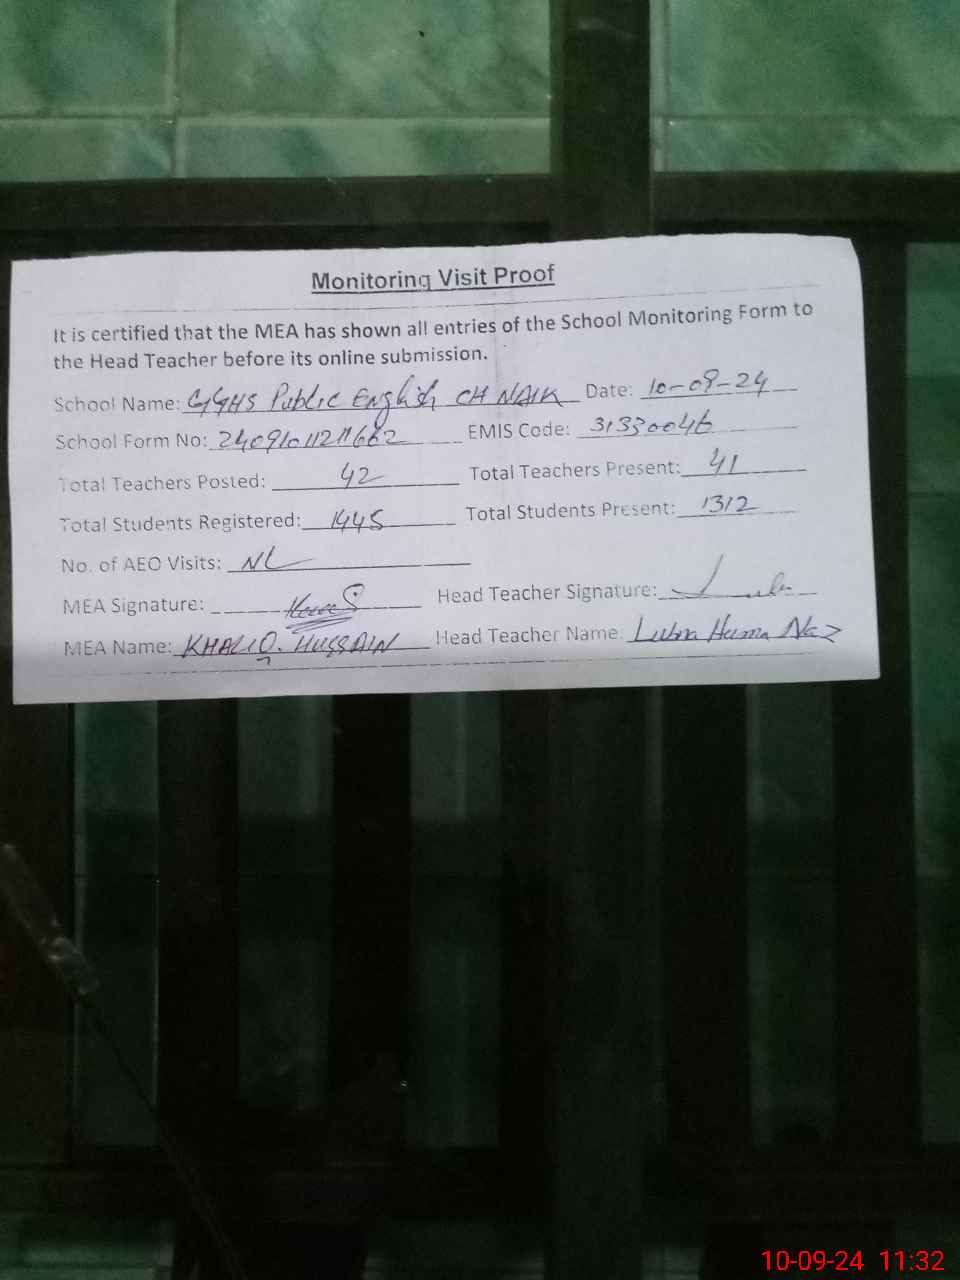 Monitoring Visit Proof
It is certified that the MEA has shown all entries of the School Monitoring Form to
the Head Teacher before its online submission.
School Name: GGHS Public English CH NAIK Date: 10-09-24
School Form No: EMIS Code: 31330046
Total Teachers Posted: 42 Total Teachers Present: 41
Total Students Registered: 1445 Total Students Present: 1312
No. of AEO Visits: NL
MEA Signature: Head Teacher Signature:
MEA Name: KHALIQ. HUSSAIN Head Teacher Name: Lubna Huma Naz
10-09-24 11:32